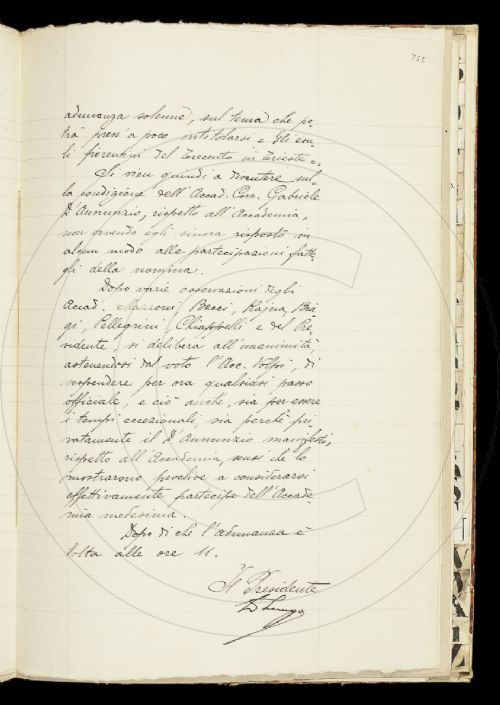 755
adunanza solenne, sul tema che po-
trà press'a poco intitolarsi = Gli esu-
li fiorentini del Trecento in Trieste =.
Si vien quindi a discutere sul-
la condizione dell'Accad. Corr. Gabriele
D'Annunzio, rispetto all'Accademia,
non avendo egli sinora risposto in
alcun modo alle partecipazioni fatte-
gli della nomina.
Dopo varie osservazioni degli
Accad. Mazzoni, Bacci, Rajna, Bia-
gi, Pellegrini, Chiappelli e del Pre-
sidente, si delibera all'unanimità,
astenendosi dal voto l'Acc. Volpi, di
sospendere per ora qualsiasi passo
officiale, e ciò anche, sia per essere
i tempi eccezionali, sia perchè pri-
vatamente il D'Annunzio manifestò,
rispetto all'Accademia, sensi che lo
mostrarono proclive a considerarsi
effettivamente partecipe dell'Accade-
mia medesima.
Dopo di che l'adunanza è
tolta alle ore 11.
Il Presidente